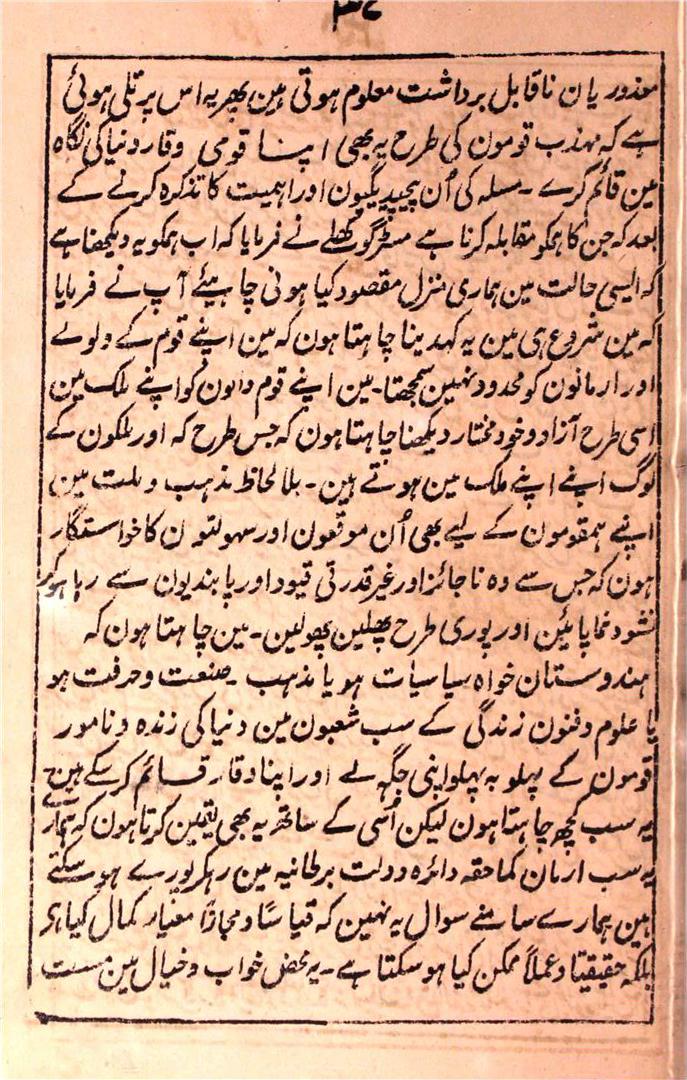 ۳۷
معذوریان ناقابل برداشت معلوم ہوتی ہین پھر یہ اس پر تلی ہوئی
ہے کہ مہذب قومون کی طرح یہ بھی اپنا قومی وقار دنیا کی نگاہ
مین قائم کرے ۔ مسلہ کی اُن پیچیدگیون اور اہمیت کا تذکرہ کرنے کے
بعد کہ جن کا ہمکو مقابلہ کرنا ہے مسٹر گوکھلے نے فرمایا کہ اب ہمکو یہ دیکھنا ہے
کہ ایسی حالت مین ہماری منزل مقصود کیا ہونی چاہیئے آپ نے فرمایا
کہ مین شروع ہی مین یہ کہدینا چاہتا ہون کہ مین اپنے قوم کے ولولے
اور ارمانون کو محدود نہین سمجھتا ۔ مین اپنے قوم والون کو اپنے ملک مین
اسی طرح آزاد و خود مختار دیکھنا چاہتا ہون کہ جس طرح کہ اور ملکون کے
لوگ اپنے اپنے ملک مین ہوتے ہین ۔ بلا لحاظ مذہب و ملت مین
اپنے ہمقومون کے لیے بھی اُن موقعون اور سہولتون کا خواستگار
ہون کہ جس سے وہ ناجائز اور غیر قدرتی قیود اور پابندیون سے رہا ہوکر
نشو و نما پائین اور پوری طرح پھلین پھولین ۔ مین چاہتا ہون کہ
ہندوستان خواہ سیاسیات ہو یا مذہب ۔ صنعت و حرفت ہو
یا علوم و فنون زندگی کے سب شعبون مین دنیا کی زندہ و نامور
قومون کے پہلو بہ پہلو اپنی جگہ لے اور اپنا وقار قائم کرسکے مین
یہ سب کچھ چاہتا ہون لیکن اُسی کے ساتھ یہ بھی یقین کرتا ہون کہ ہمارے
یہ سب ارمان کما حقہ دائرہ دولت برطانیہ مین رہکر پورے ہو سکتے
ہین ہمارے سامنے سوال یہ نہین کہ قیاسًا و مجازًا معیار کمال کیا ہی
بلکہ حقیقیتًا و عملاً ممکن کیا ہو سکتا ہے ۔ یہ محض خواب و خیال مین مست